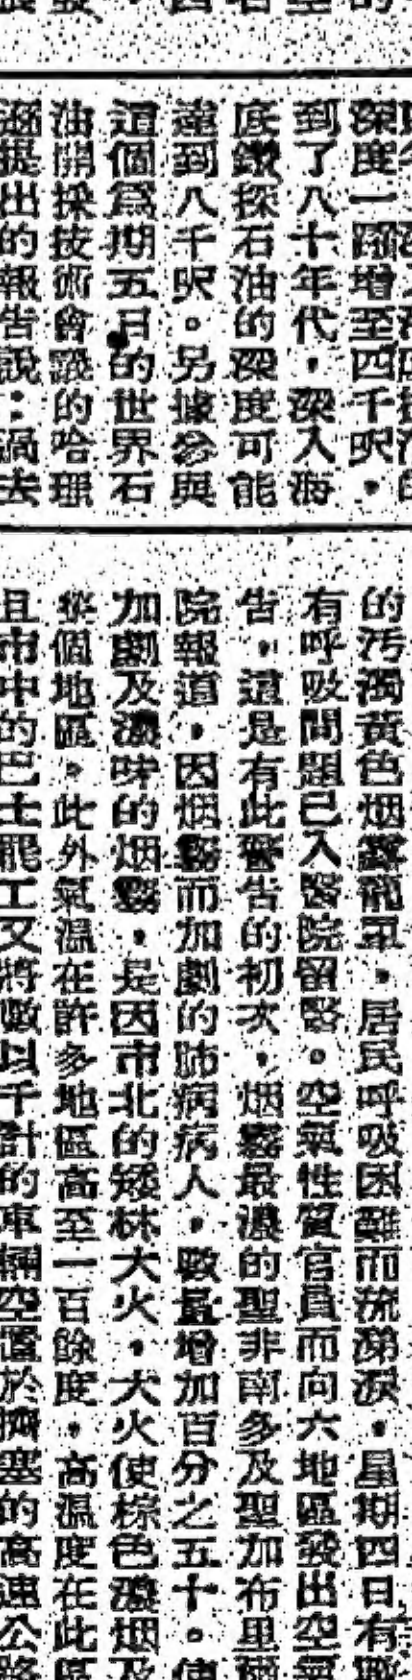 深度一躍增至四千呎，
到了八十年代，深入海
底鑽探石油的深度可能
達到八千呎。另據參與
這個為期五日的世界石
油開採技術會議的哈理
遜提出的報告說：過去
的污濁黃色烟霧籠罩，居民呼吸困難而流涕淚，星期四日，有
有呼吸問題已入醫院留醫。空氣性質官員而向六地區發出空氣
告，這是有此警告的初次，烟霧最濃的聖非南多及聖加布里
院報道，因烟霧而加劇的肺病病人，數量增加百分之五十。使
加劇及濃味的烟霧，是因市北的矮林大火，大火使棕色濃烟及
個地區。此外氣溫在許多地區高至一百餘度，高溫度在此區
且市中的巴士罷工又將數以千計的車輛空置於擠塞的高速公路